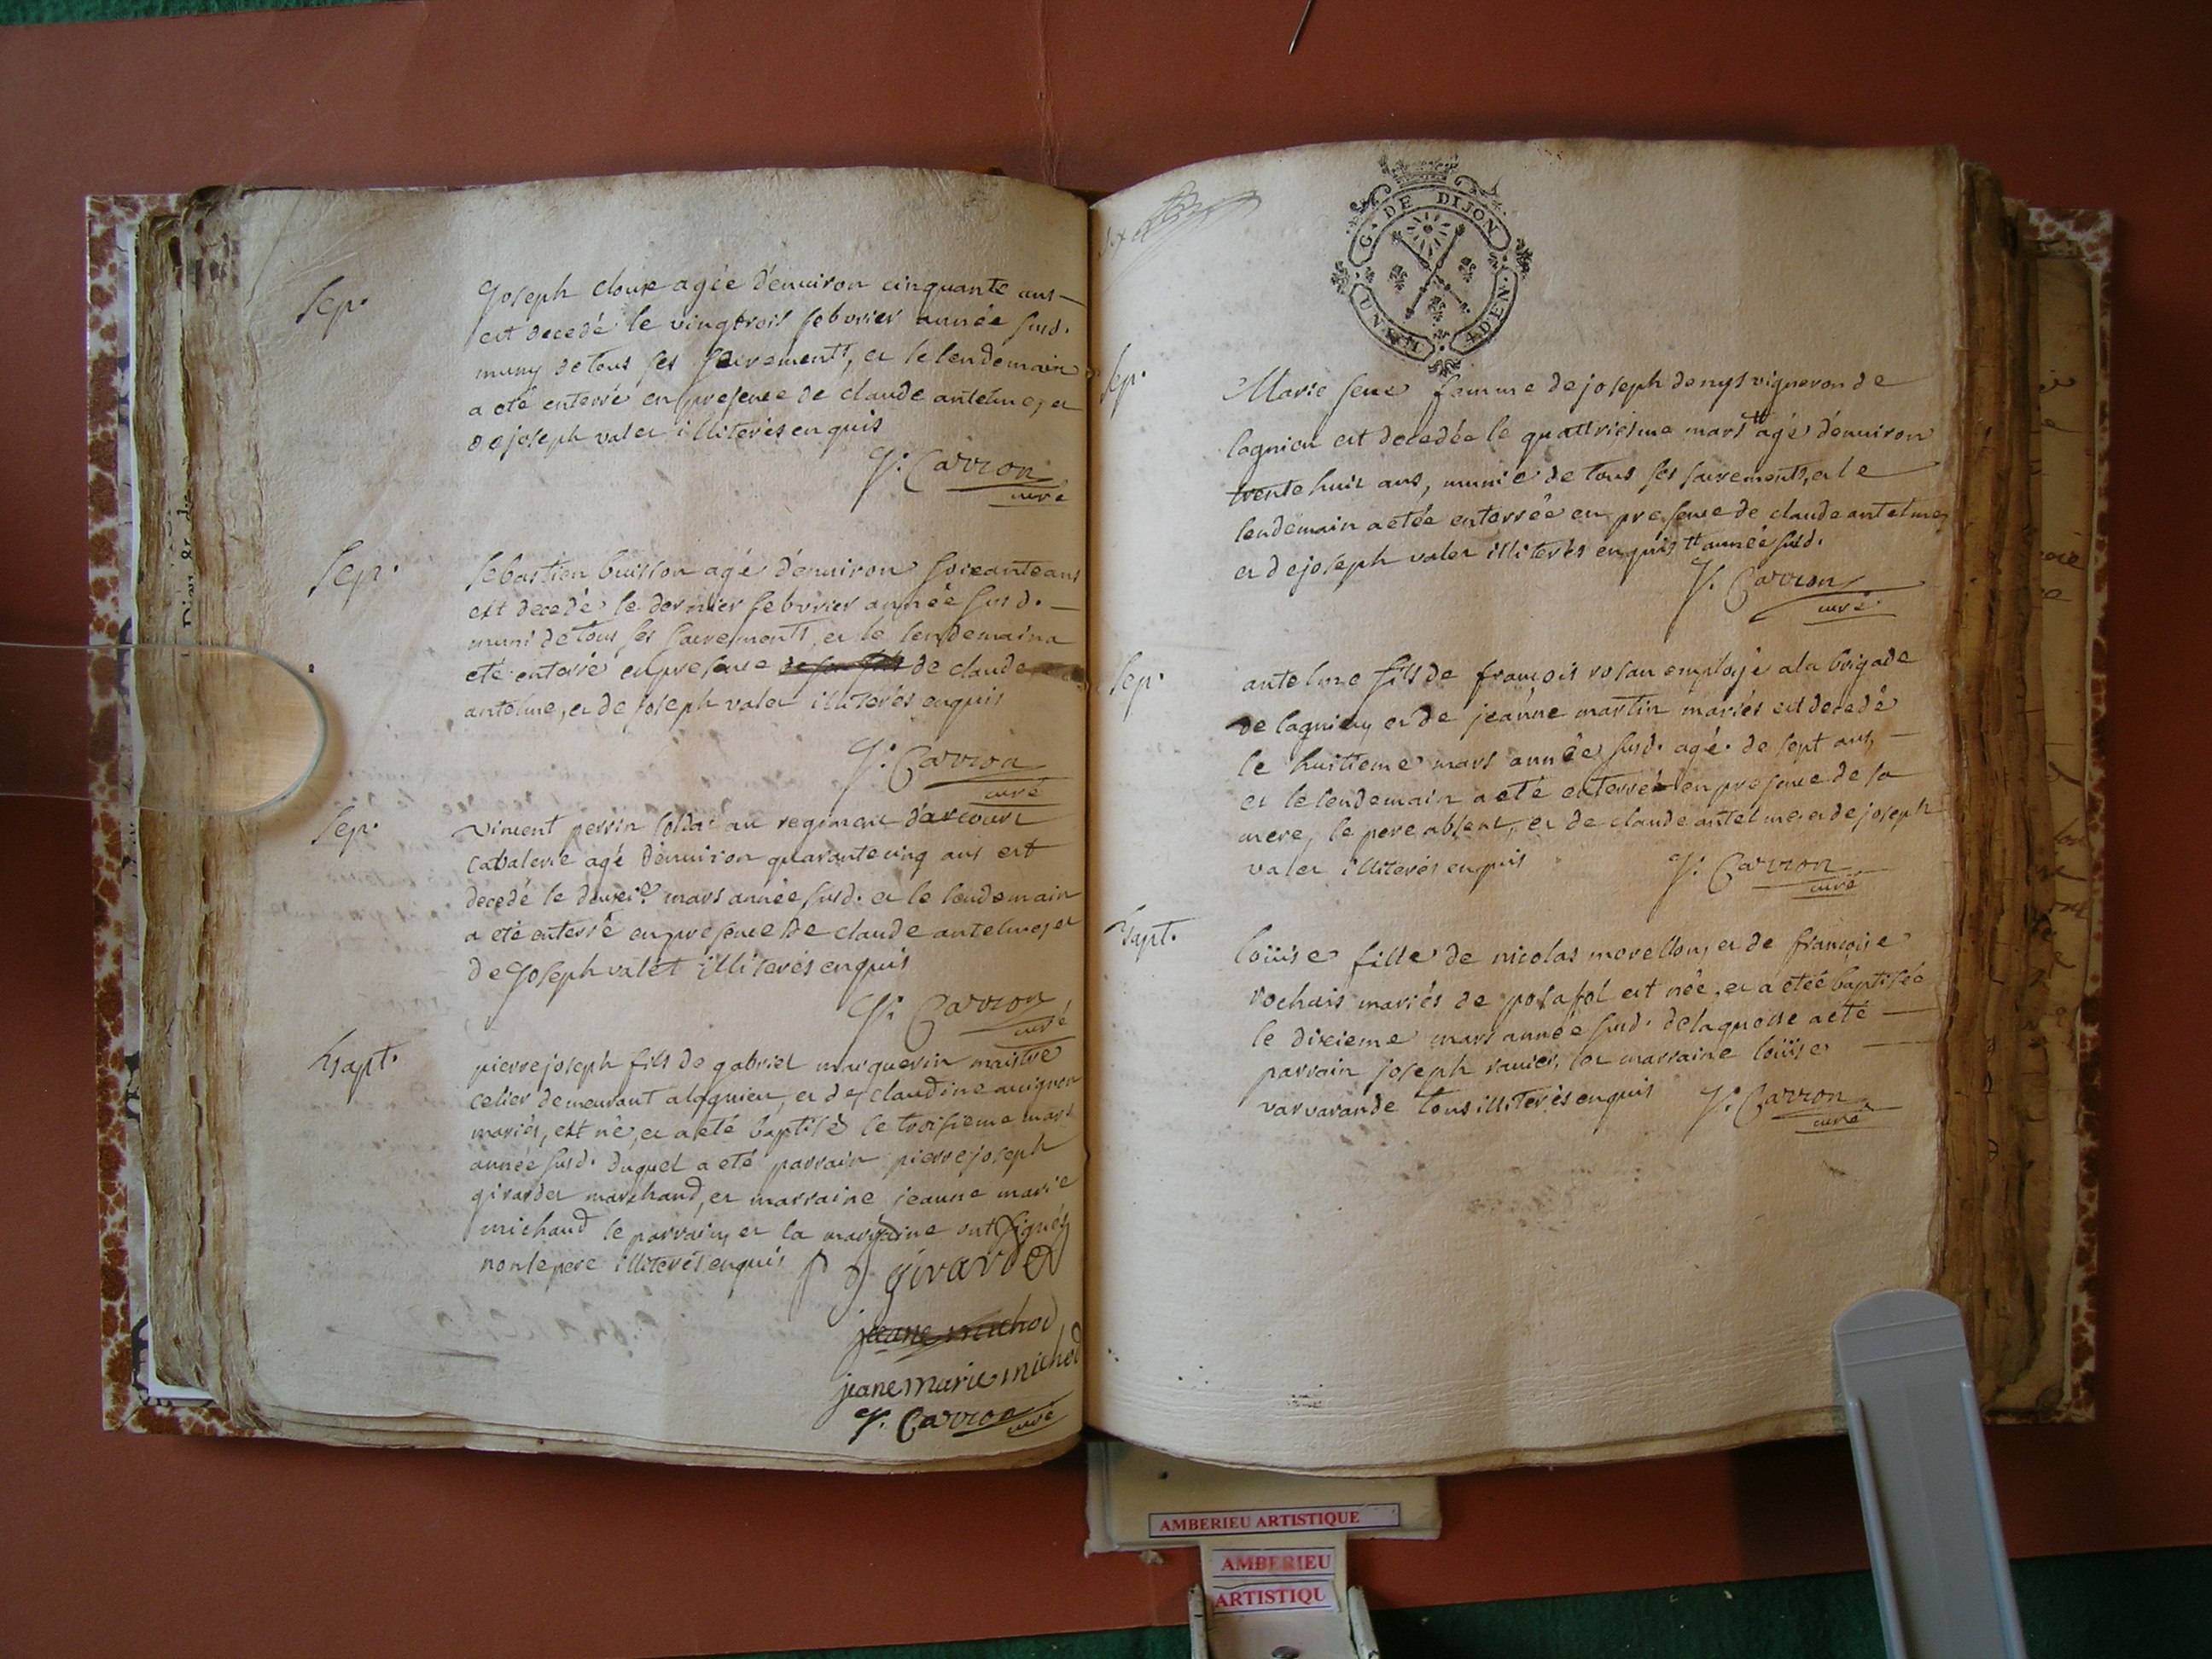 Sep.
Joseph cloux agée d'enuiron cinquante ans
est decedé le vingtrois febvrier année susd.
muny de tous ses sacrements, et le lendemain
a eté enterré en presence de claude antelme, et
de joseph valet illiterés enquis
J: Carron
curé
Sep.
Sebastien buisson agé d'enuiron soixante ans
est decedé le dernier febvrier année susd.
muni de tous ses sacrements, et le lendemain a
eté enterré en presence de claude
antelme, et de joseph valet illiterés enquis
J: Carron
curé
Sep.
Vincent perrin soldat au regiment d'arcourt
cavalerie agé d'enuiron quarante cinq ans est
decedé le deuxie. mars année susd. et le lendemain
a eté enterré en presence de claude antelme, et
de Joseph valet illiterés enquis
J: Carron
curé
bapt.
pierre joseph fils de gabriel marguerin maistre
celier demeurant a lagnieu, et de claudine auignon
mariés, est né, et a eté baptisé le troisieme mars
année susd. duquel a eté parrain pierre joseph
girardet marchand, et marraine jeanne marie
michaud le parrain, et la marraine ont signés
non le pere illiterés enquis
P J girardet
jeane michod
jeane marie michod
J. Carron
curé
G. DE DIJON
UN S
4 DEN
Sep.
Marie femme de joseph denys vigneron de
lagnieu est decedée le quattriesme mars tt agé d'enuiron
trente huit ans, munie de tous ses sacrements, et le
lendemain a etée enterrée en presence de claude antelme
et de joseph valet illiterés enquis tt année susd.
J. Carron
curé
Sep.
antelme fils de francois rosan employé a la brigade
de lagnieu et de jeanne martin mariés est decedé
le huitieme mars année susd. agé de sept ans,
et le lendemain a eté enterré en presence de sa
mere, le pere absent, et de claude antelme, et de joseph
valet illiterés enquis
J: Carron
curé
bapt.
loüise fille de nicolas morellon, et de francoise
rochais mariés de posafol est née, et a etée baptisée
le dixieme mars année susd. de laquelle a eté
parrain joseph ranier, et marraine loüise
varvarande tous illiterés enquis
J: Carron
curé
AMBERIEU ARTISTIQUE
AMBERIEU
ARTISTIQU